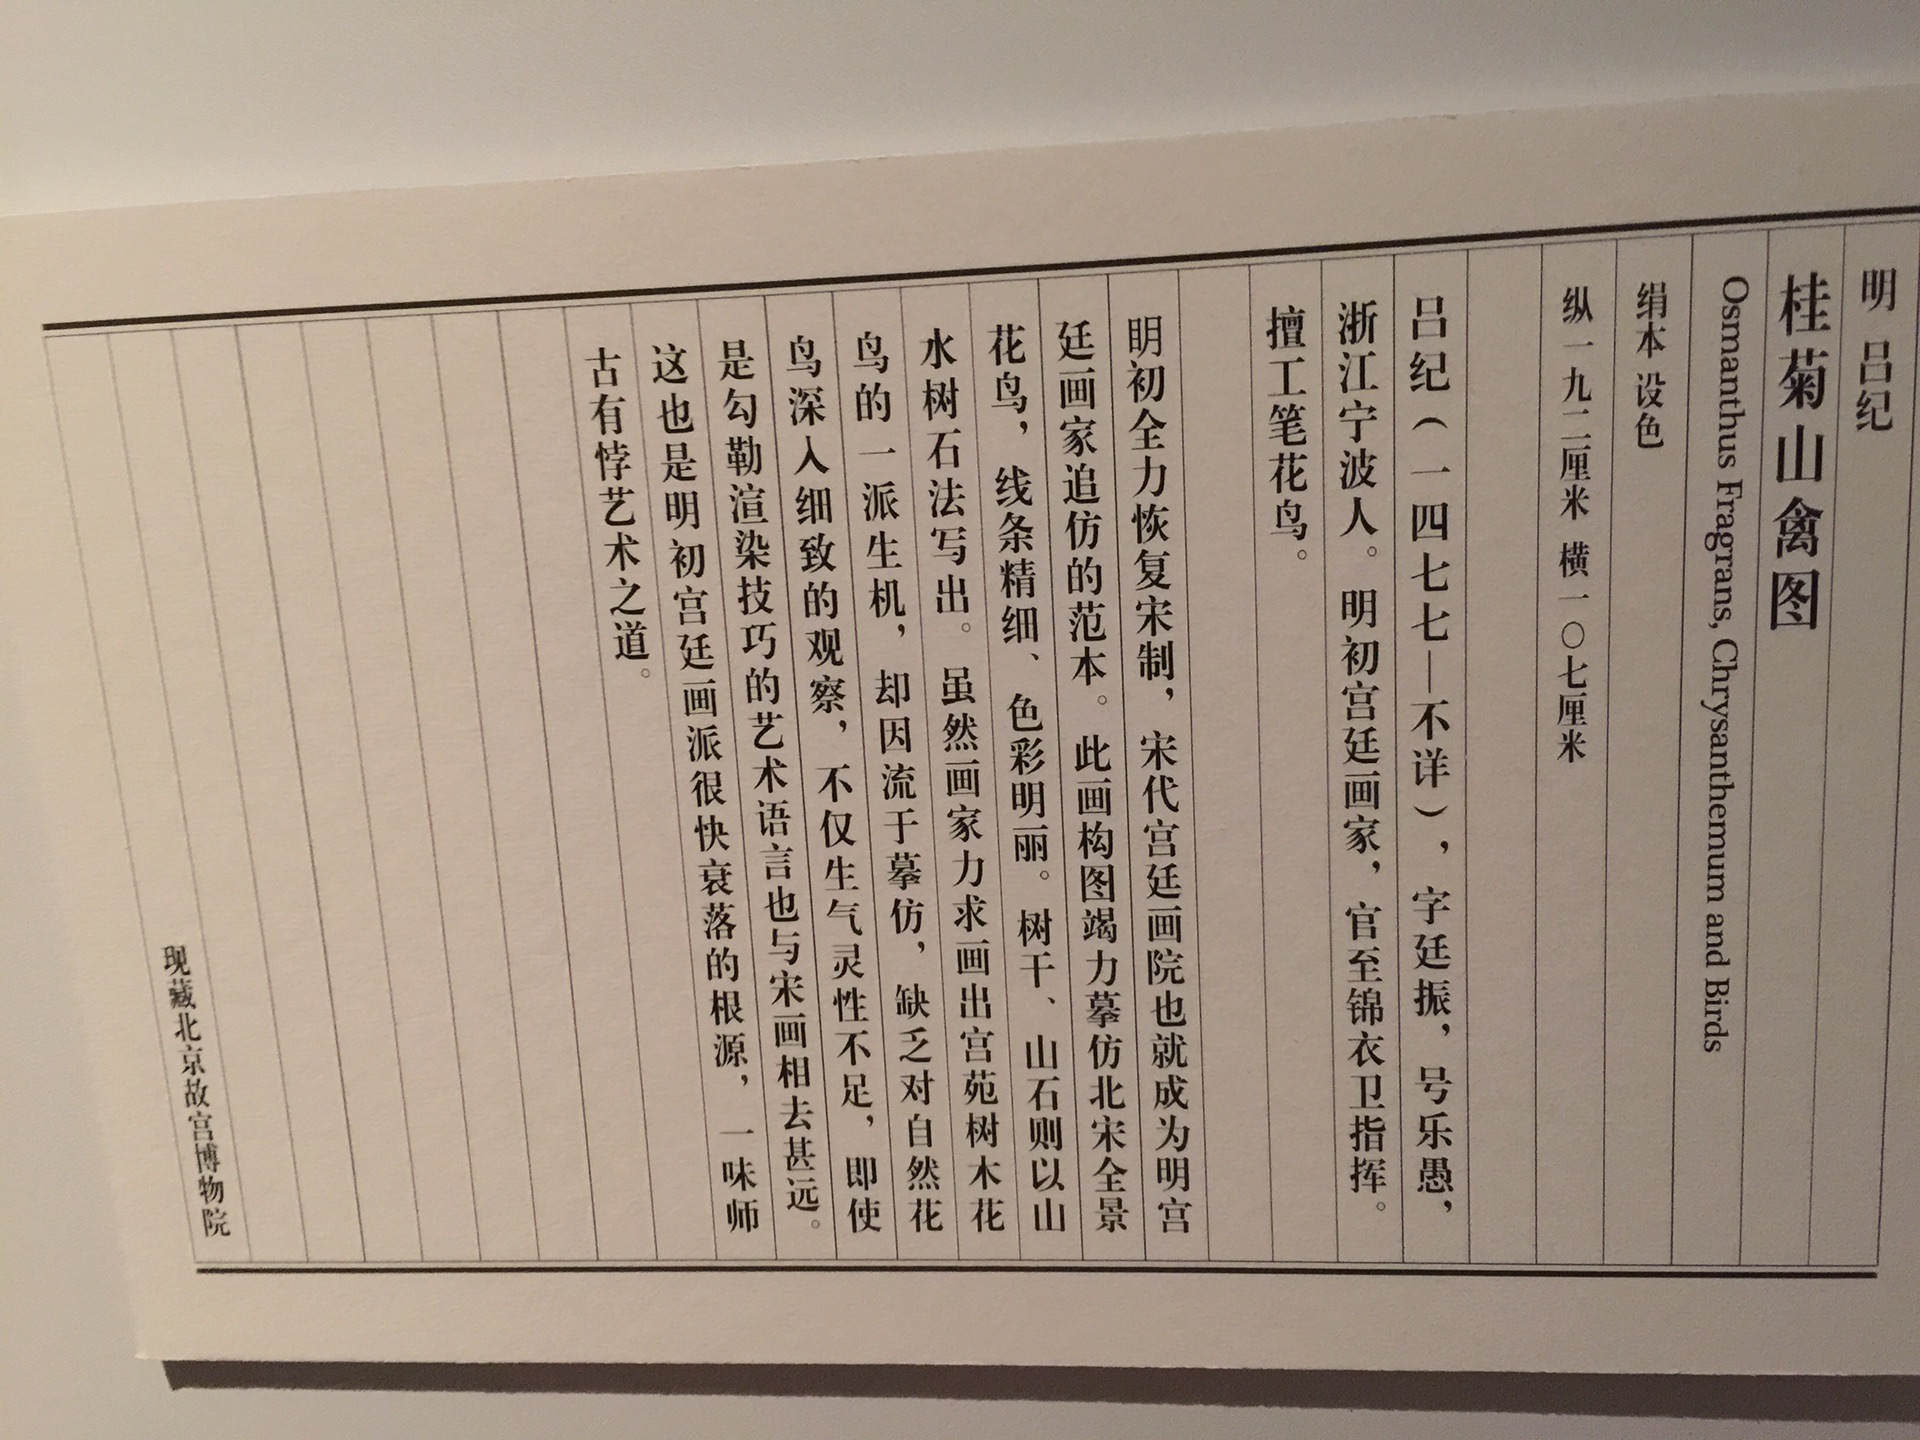 明 吕纪
桂菊山禽图
Osmanthus Fragrans, Chrysanthemum and Birds
绢本 设色
纵一九二厘米 横一〇七厘米
吕纪（一四七七—不详），字廷振，号乐愚，
浙江宁波人。明初宫廷画家，官至锦衣卫指挥。
擅工笔花鸟。
明初全力恢复宋制，宋代宫廷画院也就成为明宫
廷画家追仿的范本。此画构图竭力摹仿北宋全景
花鸟，线条精细、色彩明丽。树干、山石则以山
水树石法写出。虽然画家力求画出宫苑树木花
鸟的一派生机，却因流于摹仿，缺乏对自然花
鸟深入细致的观察，不仅生气灵性不足，即使
是勾勒渲染技巧的艺术语言也与宋画相去甚远。
这也是明初宫廷画派很快衰落的根源，一味师
古有悖艺术之道。
现藏北京故宫博物院